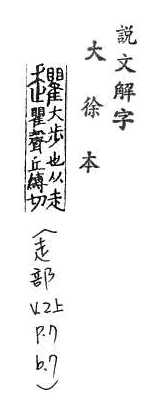 說文解字
大徐本
大步也从走
瞿聲丘縛切
(走部
V.2上
P.7
b.7)